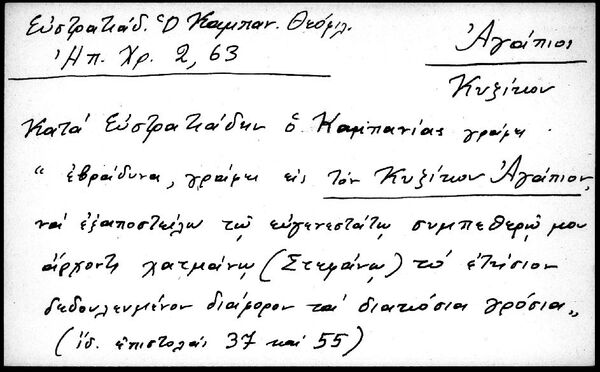 Εὐστρατιάδ. Ὁ Καμπαν. Θεόφιλ.
Ἠπ. Χρ. 2, 63
Ἀγάπιος
Κυζίκου
Κατά Εὐστρατιάδην ὁ Καμπανίας γράφει
"ἐβράδυνα, γράφει εἰς τόν Κυζίκου Ἀγάπιον,
νά ἐξαποστείλω τῷ εὐγενεστάτῳ συμπεθερῷ μου
ἄρχοντι χατμάνῳ (Στεφάνῳ) τό ἐτήσιον
δεδουλευμένον διάφορον τά διακόσια γρόσια"
(ἰδ. ἐπιστολάς 37 καί 55)